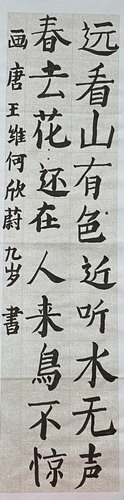 远看山有色近听水无声
春去花还在人来鳥不惊
画唐王维何欣蔚九岁書